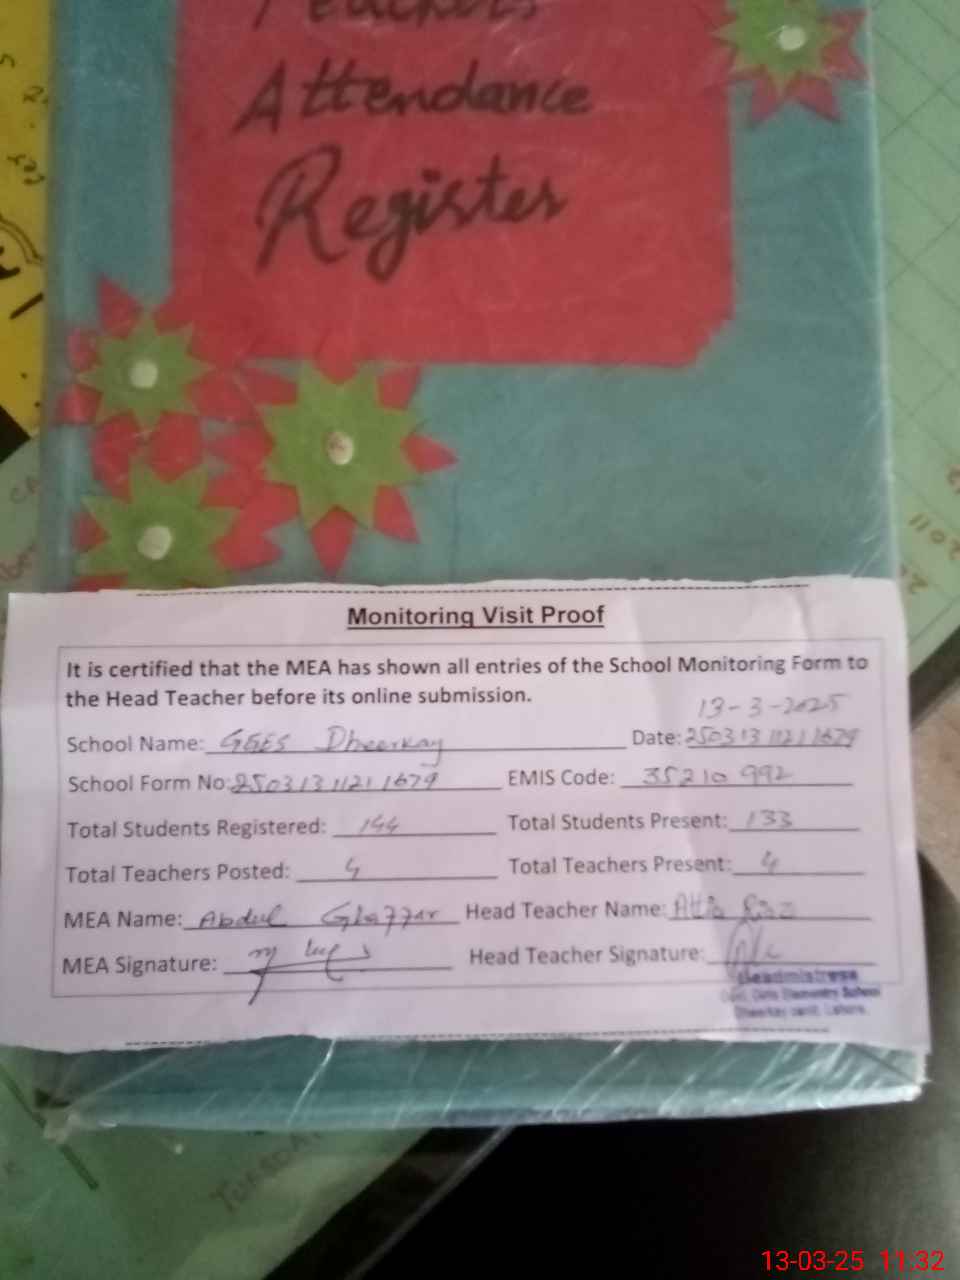 Teachers
Attendance
Register
Monitoring Visit Proof
It is certified that the MEA has shown all entries of the School Monitoring Form to
the Head Teacher before its online submission.
13-3-2025
School Name: GGES Dheerkay Date: 25031311211679
School Form No: 25031311211679 EMIS Code: 35210992
Total Students Registered: 144 Total Students Present: 133
Total Teachers Posted: 4 Total Teachers Present: 4
MEA Name: Abdul Ghaffar Head Teacher Name: Attia
MEA Signature: Head Teacher Signature:
Headmistress
Govt. Girls Elementary School
Dheerkay Lahore.
2011
13-03-25 11:32